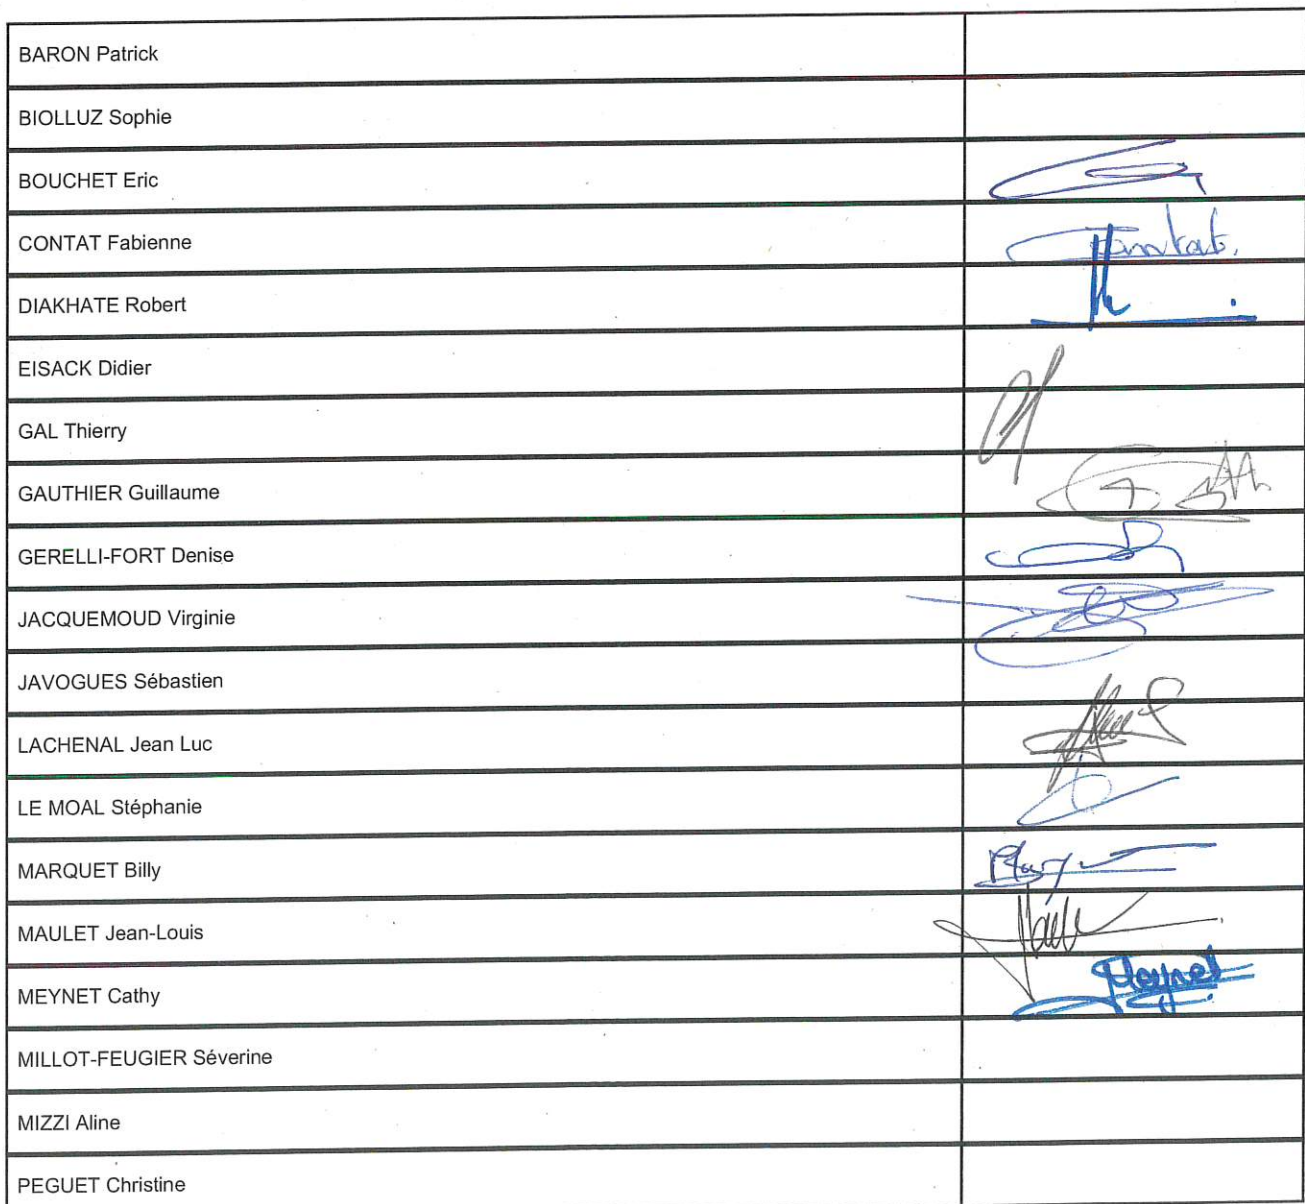 BARON Patrick
BIOLLUZ Sophie
BOUCHET Eric
CONTAT Fabienne
Contat.
DIAKHATE Robert
EISACK Didier
GAL Thierry
GAUTHIER Guillaume
GERELLI-FORT Denise
JACQUEMOUD Virginie
JAVOGUES Sébastien
LACHENAL Jean Luc
LE MOAL Stéphanie
MARQUET Billy
MAULET Jean-Louis
MEYNET Cathy
Meynet
MILLOT-FEUGIER Séverine
MIZZI Aline
PEGUET Christine